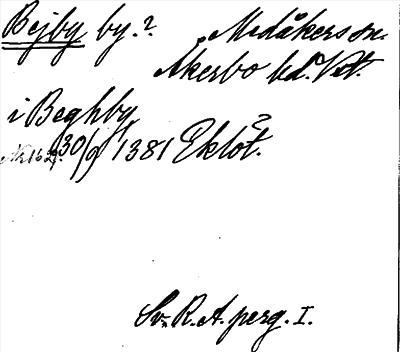 Bejby by.? Medåkers sn.
Åkerbo hd. Vstm.
i Beghby
Nr 1621. 30/9 1381 Eklöt.?
Sv. R. A. perg. I.